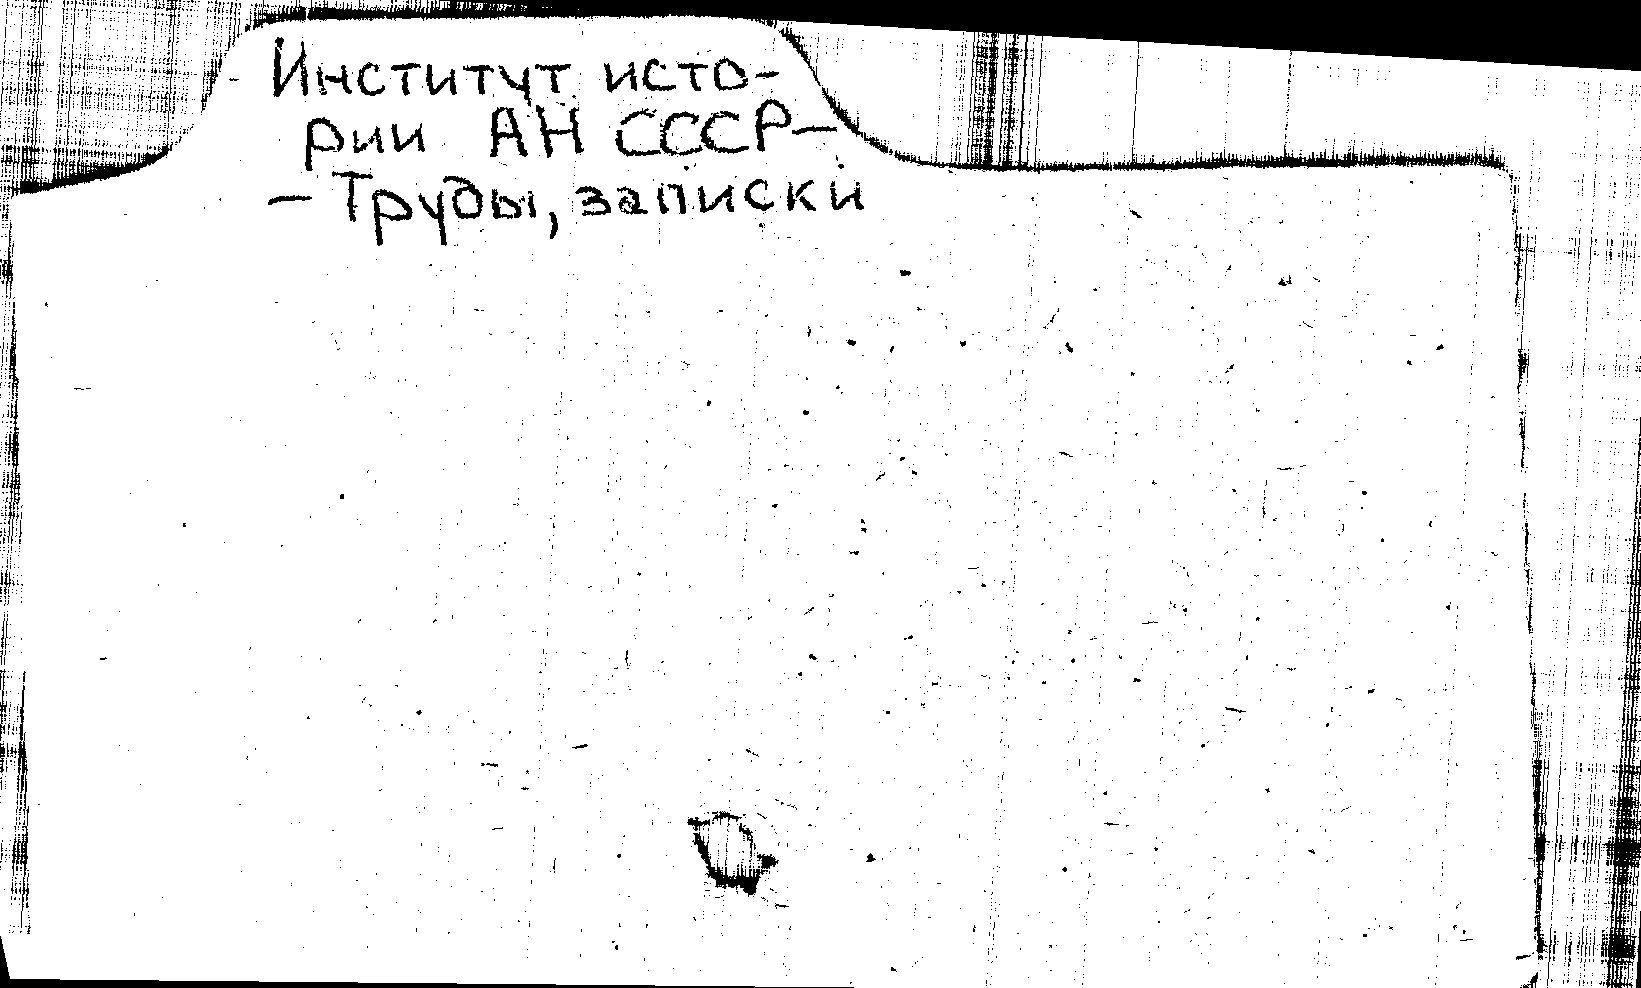 Институт исто-
рии АН СССР-
- Труды, записки